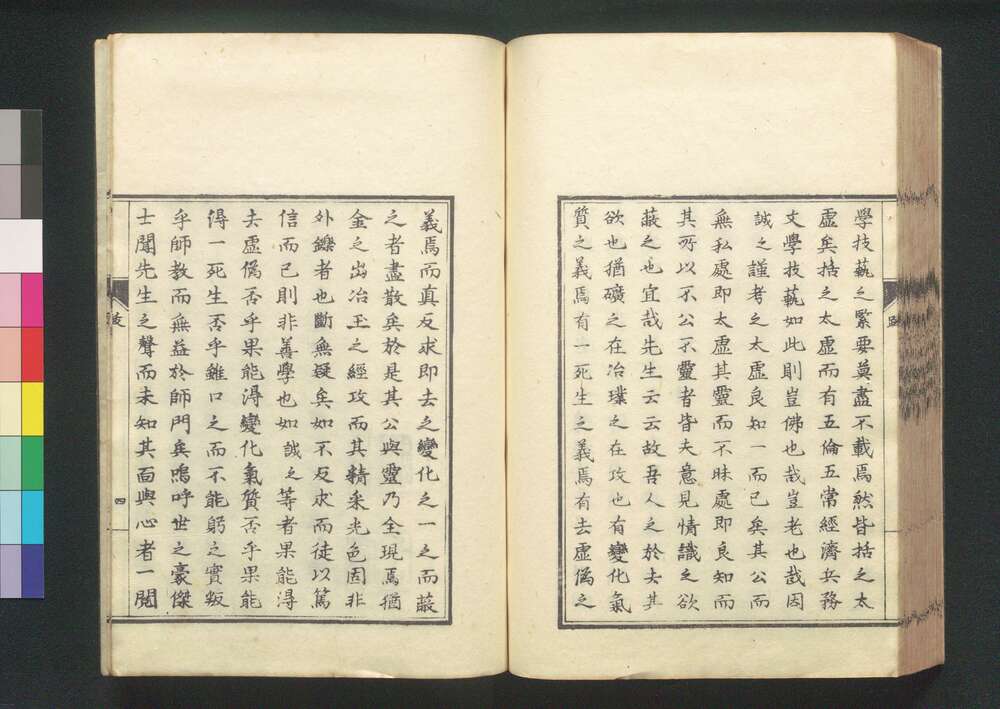 學技藝之緊要莫盡不載焉然皆括之太
虛矣括之太虛而有五倫五常經濟兵務
文學技藝如此則豈佛也哉豈老也哉因
誠之謹考之太虛良知一而已矣其公而
無私處即太虛其靈而不昧處即良知而
其所以不公不靈者皆夫意見情識之欲
蔽之也宜哉先生云云故吾人之於夫其
欲也猶礦之在冶璞之在攻也有變化氣
質之義焉有一死生之義焉有去虛僞之
義焉而真反求即去之變化之一之而蔽
之者盡散矣於是其公與靈乃全現焉猶
金之出冶玉之經攻而其精采光色固非
外鑠者也斷無疑矣如不反求而徒以篤
信而已則非善學也如誠之等者果能淂
去虛僞否乎果能淂變化氣質否乎果能
得一死生否乎雖口之而不能躬之實叛
乎師教而無益於師門矣嗚呼世之豪傑
士聞先生之聲而未知其面與心者一閱
跋
四